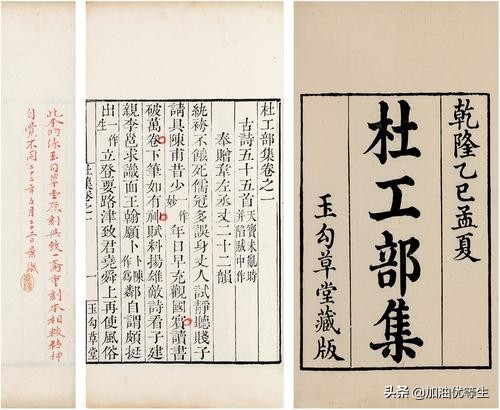 乾隆乙巳孟夏
杜工部集
玉勾草堂藏版
杜工部集卷之一
古詩五十五首 天寶未亂時
并陷賊中作
奉贈韋左丞丈二十二韻
紈袴不餓死儒冠多誤身丈人試靜聽賤子
請具陳甫昔少一作妙年日早充觀國賓讀書
破萬卷下筆如有神賦料揚雄敵詩看子建
親李邕求識面王翰願卜卜陳作爲鄰自謂頗挺
出一作生立登要路津致君堯舜上再使風俗
杜集卷之一
一
玉勾草堂
此本的係玉勾草堂原刻與致一齋重刻本相較精神
自覺不同三十二年五月二十三日
头条 @加油优等生